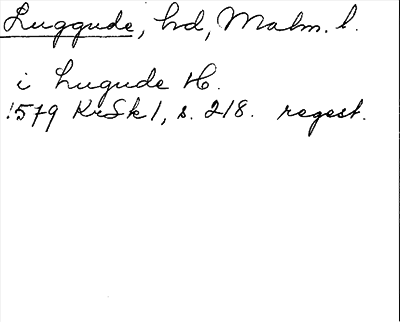 Luggude, hd, Malm. l.
i Lugude H.
1579 KrSk 1, s. 218. regest.